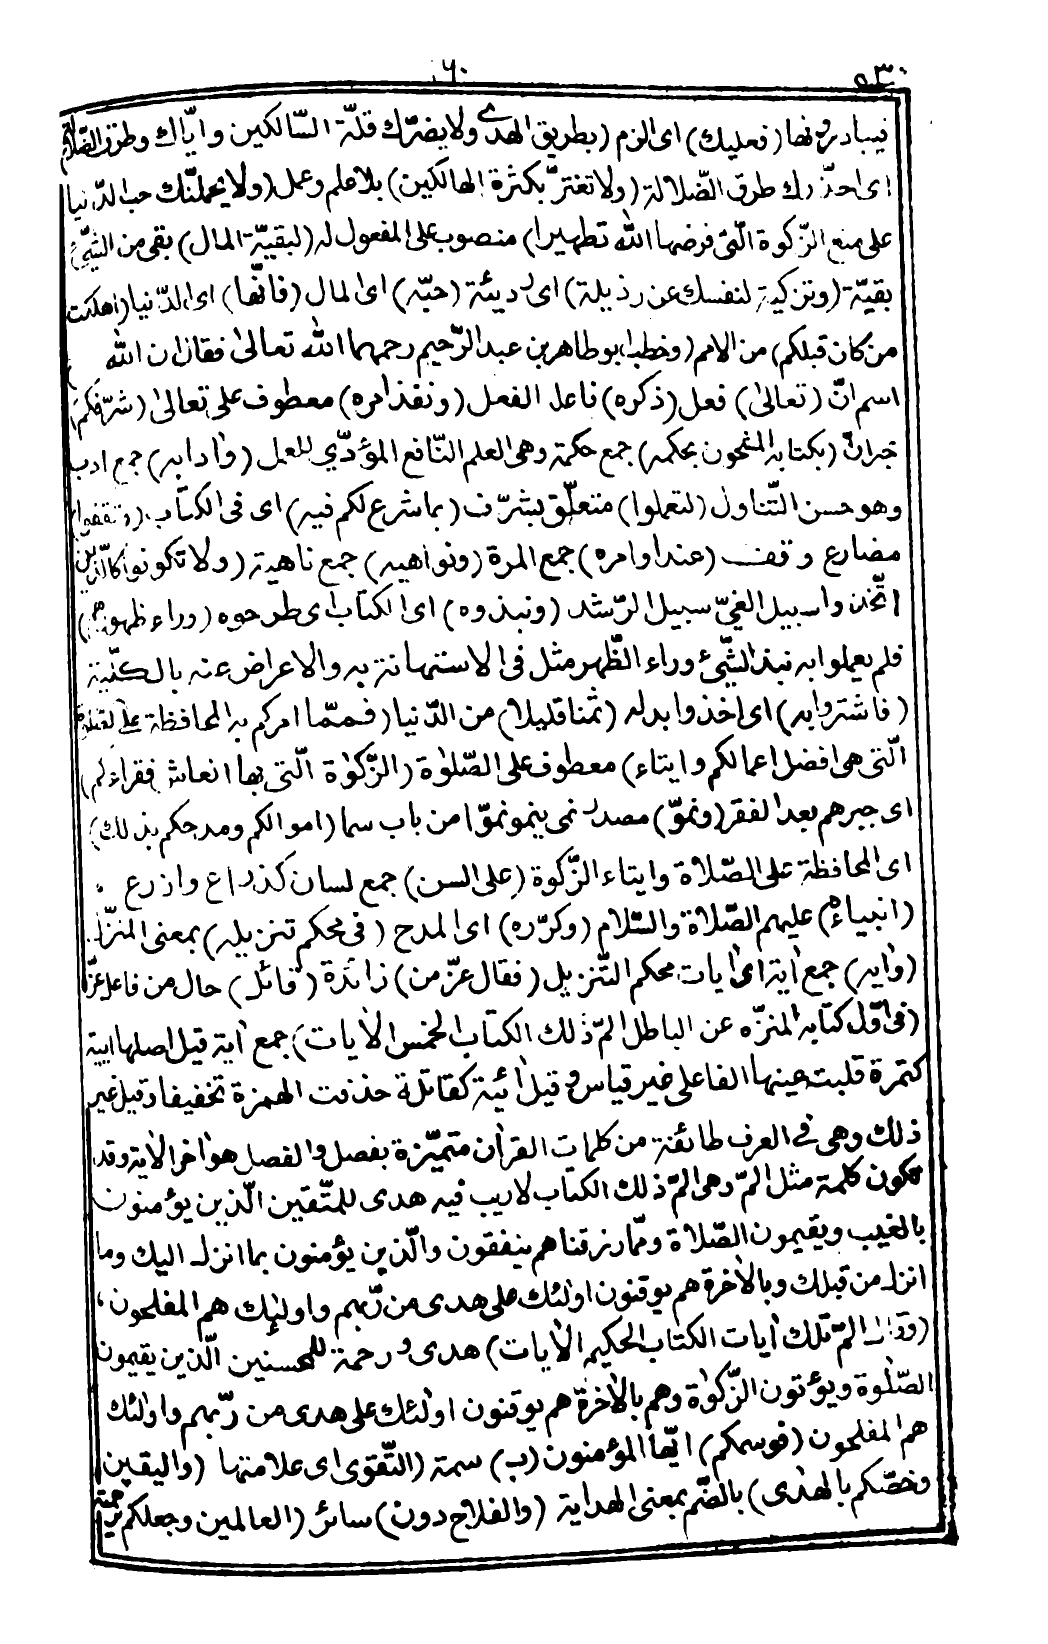 ٦٠
٥٣٠
فيبادرونها (فعليك) اى الزم (بطريق الهدى ولا يضرّك قلّة السّالكين وايّاك وطرق الضّلالة)
اى احذّرك طرق الضّلالة (ولا تغترّ بكثرة الهالكين) بلا علم وعمل (ولا يحملنّك حب الدّنيا
على منع الزّكوة الّتى فرضها الله تطهيرا) منصوب على المفعول له (لبقيّة المال) بقى من الشّيئ
بقيّة (وتزكية لنفسك عن رذيلة) اى رديئة (حبّه) اى المال (فانّها) اى الدّنيا (اهلكت
من كان قبلكم) من الامم (وخطب ابو طاهر بن عبد الرّحيم رحمهما الله تعالى فقال ان الله
اسم انّ (تعالى) فعل (ذكره) فاعل الفعل (ونفذ امره) معطوف على تعالى (شرّفكم)
خبر انّ (بكتابه المشحون بحكمه) جمع حكمة وهى العلم النّافع المؤدّي للعمل (وادابه) جمع ادب
وهو حسن التّناول (لتعملوا) متعلّق بشرّف (بما شرع لكم فيه) اى فى الكتاب (وتقفوا)
مضارع وقف (عند اوامره) جمع المرة (ونواهيه) جمع ناهية (ولا تكونوا كالّذين
اتّخذوا سبيل الغيّ سبيل الرّشد (ونبذوه) اى الكتاب اى طرحوه (وراء ظهورهم)
فلم يعملوا به نبذ الشّيئ وراء الظّهر مثل فى الاستهانة به والاعراض عنه بالكلّيّة
(فاشتروا به) اى اخذوا بدله (ثمنا قليلا) من الدّنيا (فممّا امركم به المحافظة على الصّلوة
الّتى هى افضل اعمالكم وايتاء) معطوف على الصّلوة (الزّكوة الّتى بها انعاش فقراءكم)
اى جبرهم بعد الفقر (ونموّ) مصدر نمى ينمو نموّا من باب سما (اموالكم ومدحكم بذلك)
اى المحافظة على الصّلاة وايتاء الزّكوة (على السن) جمع لسان كذراع واذرع
(انبياءه) عليهم الصّلاة والسّلام (وكرّره) اى المدح (فى محكم تنزيله) بمعنى المنزّل
(وايه) جمع اية اى ايات محكم التّنزيل (فقال عزّ من) زائدة (قائل) حال من فاعل عزّ
(فى اوّل كتابه المنزّه عن الباطل المّ ذلك الكتاب الخمس الايات) جمع اية قيل اصلها ايية
كتمرة قلبت عينها الفا على غير قياس وقيل ائية كقائلة حذفت الهمزة تخفيفا وقيل غير
ذلك وهى فى العرف طائفة من كلمات القران متميّزة بفصل والفصل هو اخر الاية وقد
تكون كلمة مثل المّ وهى المّ ذلك الكتاب لا ريب فيه هدى للمتّقين الّذين يؤمنون
بالغيب ويقيمون الصّلاة وممّا رزقناهم ينفقون والّذين يؤمنون بما انزل اليك وما
انزل من قبلك وبالاخرة هم يوقنون اولئك على هدى من رّبهم واولئك هم المفلحون
(وقال المّ تلك ايات الكتاب الحكيم الايات) هدى ورحمة للمحسنين الّذين يقيمون
الصّلوة ويؤتون الزّكوة وهم بالاخرة هم يوقنون اولئك على هدى من رّبهم واولئك
هم المفلحون (فوسمكم) ايّها المؤمنون (ب) سمة (التّقوى اى علامتها (واليقين
وخصّكم بالهدى) بالضّم بمعنى الهداية (والفلاح دون) سائر (العالمين وجعلكم